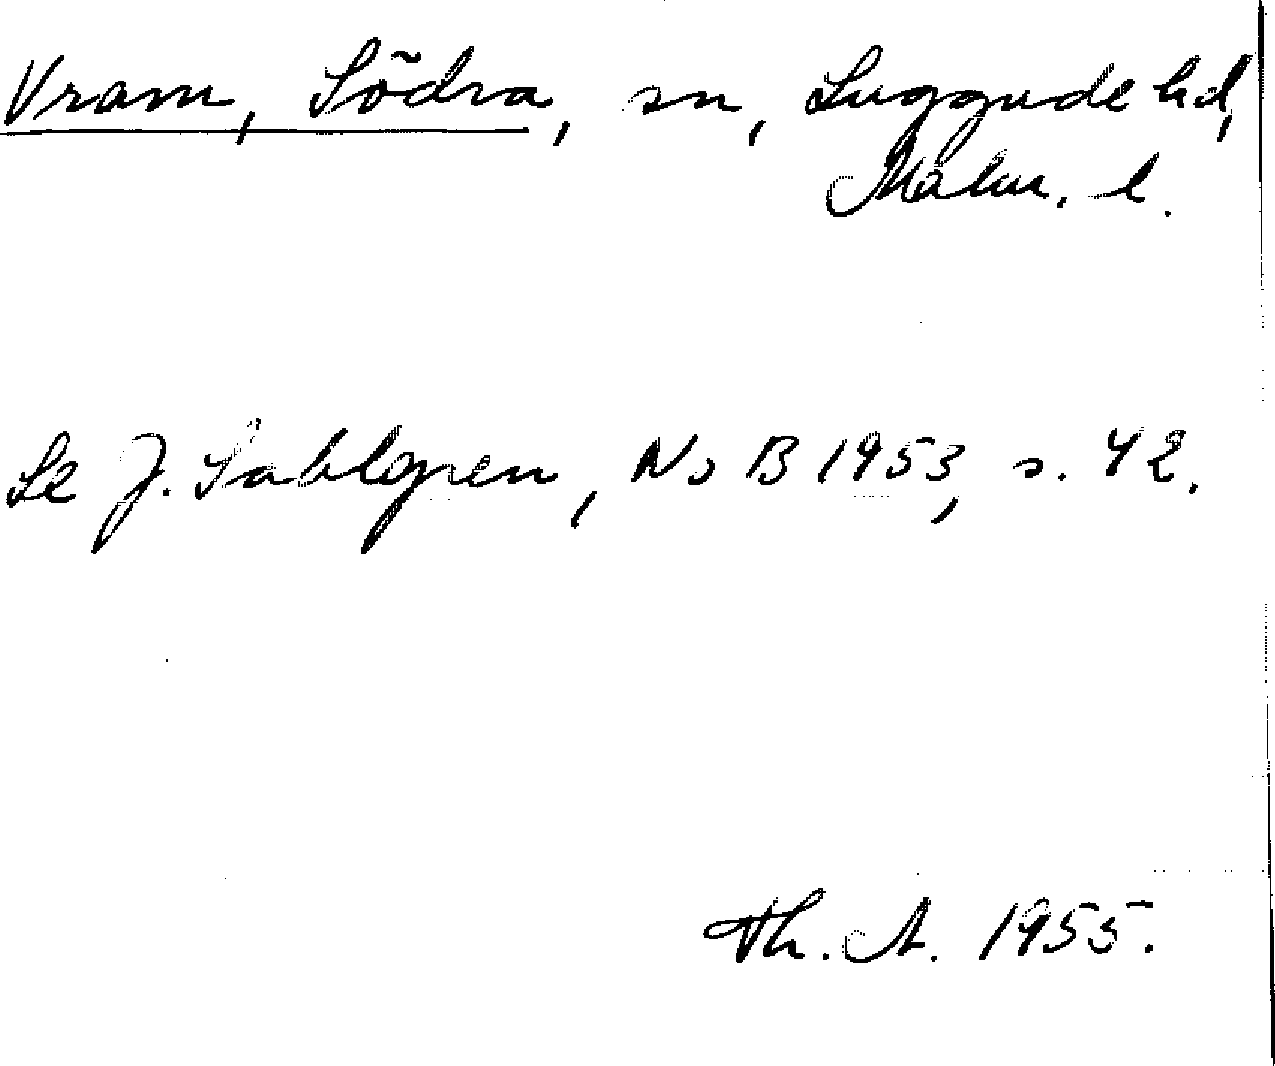 Vram, Södra, sn, Luggude hd,
Malm. l.
Se J. Sahlgren, NoB 1953, s. 42.
Th. A. 1955.